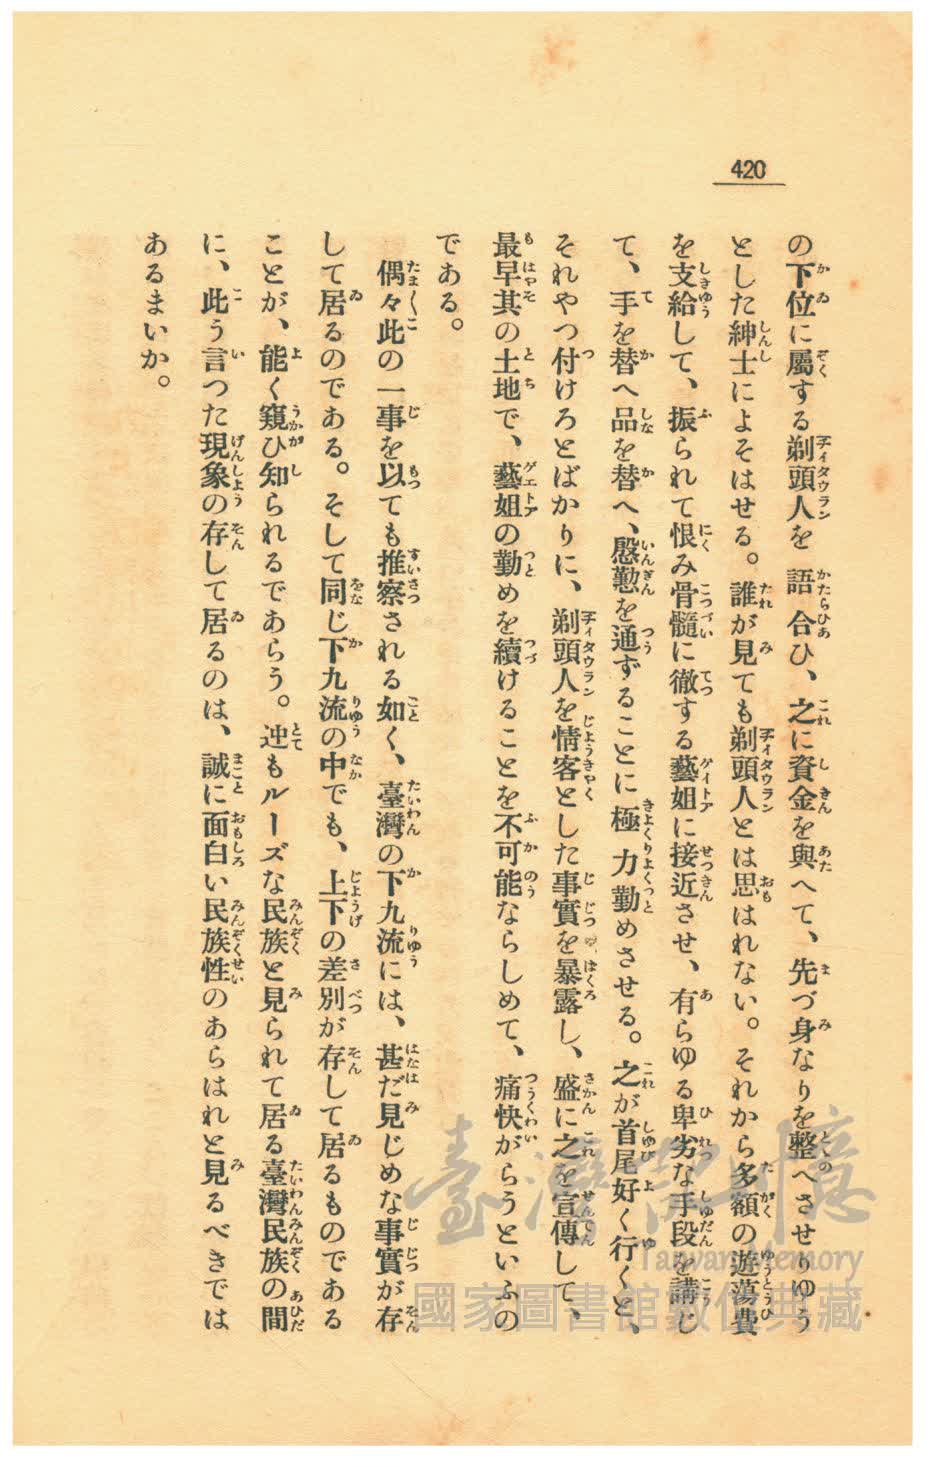 420
の下位に屬する剃頭人を語合ひ、之に資金を與へて、先づ身なりを整へさせりゆう
とした紳士によそはせる。誰が見ても剃頭人とは思はれない。それから多額の遊蕩費
を支給して、振られて恨み骨髓に徹する藝妲に接近させ、有らゆる卑劣な手段を講じ
て、手を替へ品を替へ、慇懃を通ずることに極力勤めさせる。之が首尾好く行くと、
それやつ付けろとばかりに、剃頭人を情客とした事實を暴露し、盛に之を宣傳して、
最早其の土地で、藝妲の勤めを續けることを不可能ならしめて、痛快がらうといふの
である。
偶々此の一事を以ても推察される如く、臺灣の下九流には、甚だ見じめな事實が存
して居るのである。そして同じ下九流の中でも、上下の差別が存して居るものである
ことが、能く窺ひ知られるであらう。迚もルーズな民族と見られて居る臺灣民族の間
に、此う言つた現象の存して居るのは、誠に面白い民族性のあらはれと見るべきでは
あるまいか。
臺灣記憶
Taiwan Memory
國家圖書館數位典藏